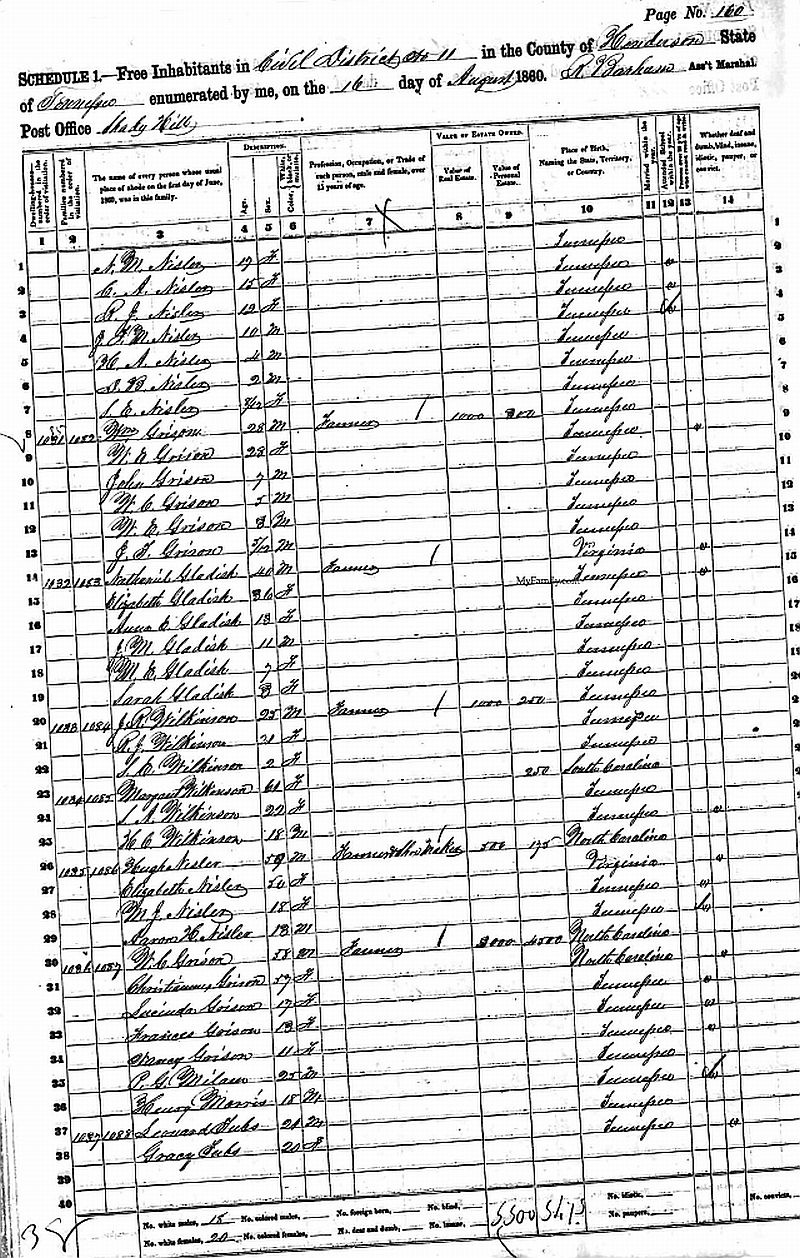 Page No. 160
SCHEDULE 1.—Free Inhabitants in Civil District No 11 in the County of Henderson State
of Tennessee enumerated by me, on the 16 day of August 1860. R Barham Ass't Marshal.
Post Office Shady Hill
Dwelling-houses—numbered in the order of visitation.
Families numbered in the order of visitation.
The name of every person whose usual place of abode on the first day of June, 1860, was in this family.
DESCRIPTION.
Age.
Sex.
Color, White, black, or mulatto.
Profession, Occupation, or Trade of each person, male and female, over 15 years of age.
VALUE OF ESTATE OWNED.
Value of Real Estate.
Value of Personal Estate.
Place of Birth, Naming the State, Territory, or Country.
Married within the year.
Attended School within the year.
Whether deaf and dumb, blind, insane, idiotic, pauper, or convict.
1 2 3 4 5 6 7 8 9 10 11 12 13 14
Tennessee
1 N. M. Nisler 17 F Tennessee
2 C. A. Nisler 15 F Tennessee
3 R. J. Nisler 12 F Tennessee
4 J. F. M. Nisler 10 M Tennessee
5 H. A. Nisler 4 M Tennessee
6 D. B. Nisler 2 M Tennessee
7 S. E. Nisler /12 F Tennessee
8 1082 Wm Grisom 28 M Farmer 1000 800 Tennessee
9 W. E Grison 28 F Tennessee
10 John Grison 7 M Tennessee
11 W. C. Grison 5 M Tennessee
12 W. E. Grison 3 M Tennessee
13 J. T. Grison 5/12 M Virginia
14 1032 1083 Nathaniel Gladish 40 M Farmer Tennessee
MyFamily.com
15 Elizabeth Gladish 36 F Tennessee
16 Anna E Gladish 13 F Tennessee
17 J. M. Gladish 11 M Tennessee
18 M. E. Gladish 7 F Tennessee
19 Sarah Gladish 3 F Tennessee
20 1033 1084 J. R. Wilkinson 25 M Farmer 1000 250 Tennessee
21 R. J. Wilkinson 21 F Tennessee
22 S. E. Wilkinson 2 F 250 South Carolina
23 1034 1085 Margaret Wilkenson 61 F Tennessee
24 S. A. Wilkinson 22 F Tennessee
25 H. C. Wilkinson 18 M North Carolina
26 1035 1086 Hugh Nisler 59 M Farmer & Shoe Maker 500 175 Virginia
27 Elizabeth Nisler 50 F Tennessee
28 M. J. Nisler 18 F Tennessee
29 Aaron H. Nisler 13 M North Carolina
30 1036 1087 W. C. Grison 58 M Farmer 3000 4500 North Carolina
31 Christianna Grison 57 F Tennessee
32 Lucinda Grison 17 F Tennessee
33 Frances Grison 13 F Tennessee
34 Nancy Grison 11 F Tennessee
35 P. G. Milam 25 M Tennessee
36 Henry Morris 18 M Tennessee
37 1037 1088 Leonard Tubs 21 M Tennessee
38 Gracy Tubs 20 F
39
40
No. white males, 18 No. colored males, No. foreign born, No. blind, 5500 No. idiotic, No. convicts,
No. white females, 20 No. colored females, No. deaf and dumb, No. insane, No. paupers,
38